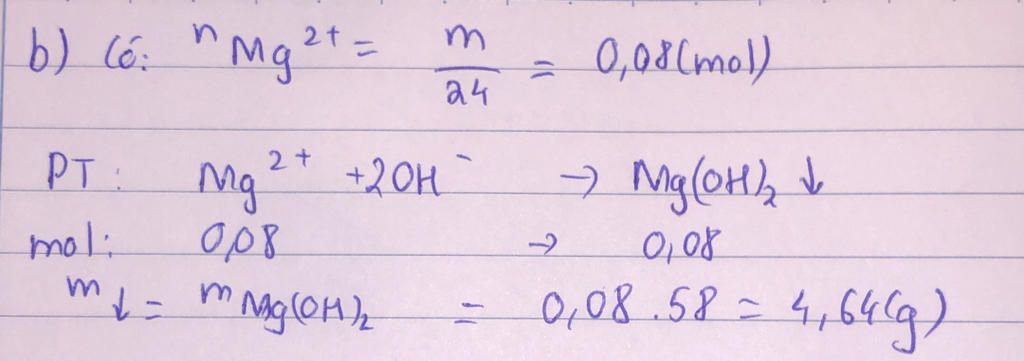 b) Có: nMg²⁺ = m/24 = 0,08(mol)
PT: Mg²⁺ + 2OH⁻ → Mg(OH)₂ ↓
mol: 0,08 → 0,08
m↓ = mMg(OH)₂ = 0,08 . 58 = 4,64(g)